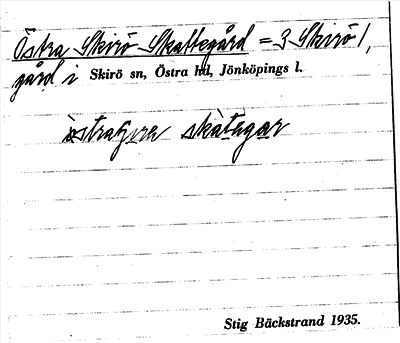 Östra Skirö Skattegård = 3 Skirö 1,
gård i Skirö sn, Östra hd, Jönköpings l.
skàtegar
Stig Bäckstrand 1935.